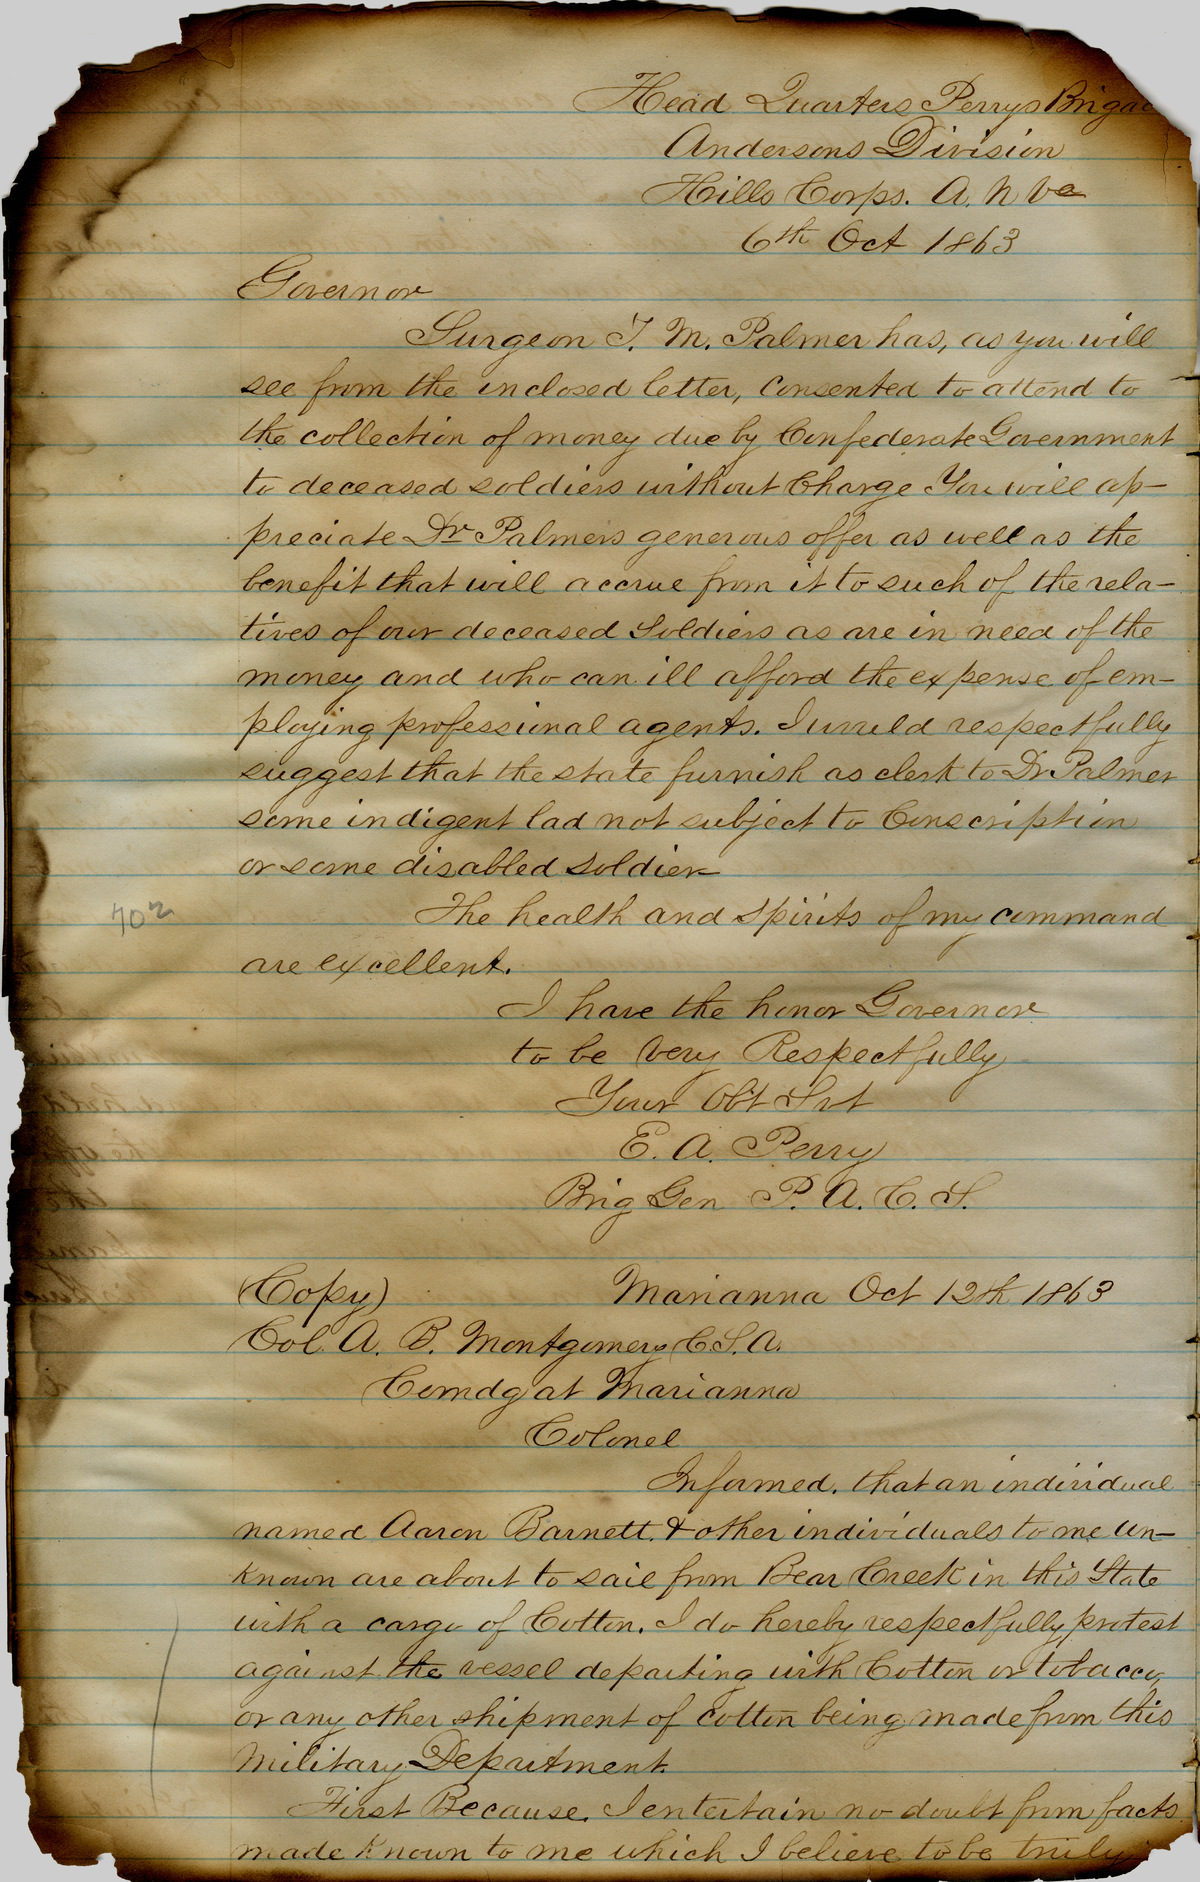 Head Quarters Perrys Brigad
Andersons Division
Hills Corps. A. N Va
6th Oct 1863
Governor
Surgeon T. M. Palmer has, as you will
see from the inclosed letter, consented to attend to
the collection of money due by Confederate Government
to deceased soldiers without Charge You will ap-
preciate Dr Palmers generous offer as well as the
benefit that will accrue from it to such of the rela-
tives of our deceased Soldiers as are in need of the
money and who can ill afford the expense of em-
ploying professional agents. I would respectfully
suggest that the state furnish as clerk to Dr Palmer
some indigent lad not subject to Conscription
or some disabled soldier
702
The health and spirits of my command
are excellent.
I have the honor Governor
to be Very Respectfully
Your Obt Srt
E. A. Perry
Brig Gen P. A. C. S.
(Copy) Marianna Oct 12th 1863
Col. A. B. Montgomery C.S.A.
Comdg at Marianna
Colonel
Informed. that an individual
named Aaron Barnett. & other individuals to me un-
known are about to sail from Bear Creek in this State
with a cargo of Cotton. I do hereby respectfully protest
against the vessel departing with Cotton or tobacco,
or any other shipment of cotton being made from this
Military Department.
First Because. I entertain no doubt from facts
made known to me which I believe to be truly